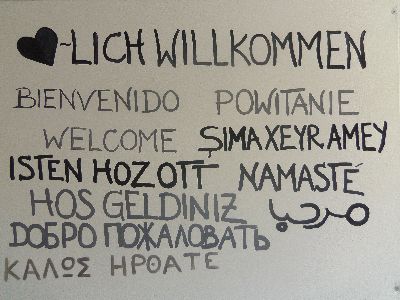 ♥-LICH WILLKOMMEN
BIENVENIDO POWITANIE
WELCOME ŞIMAXEYRAMEY
ISTEN HOZOTT NAMASTÉ
HOS GELDINIZ مرحبا
ДОБРО ПОЖАЛОВАТЬ
ΚΑΛΩΣ ΗΡΘΑΤΕ